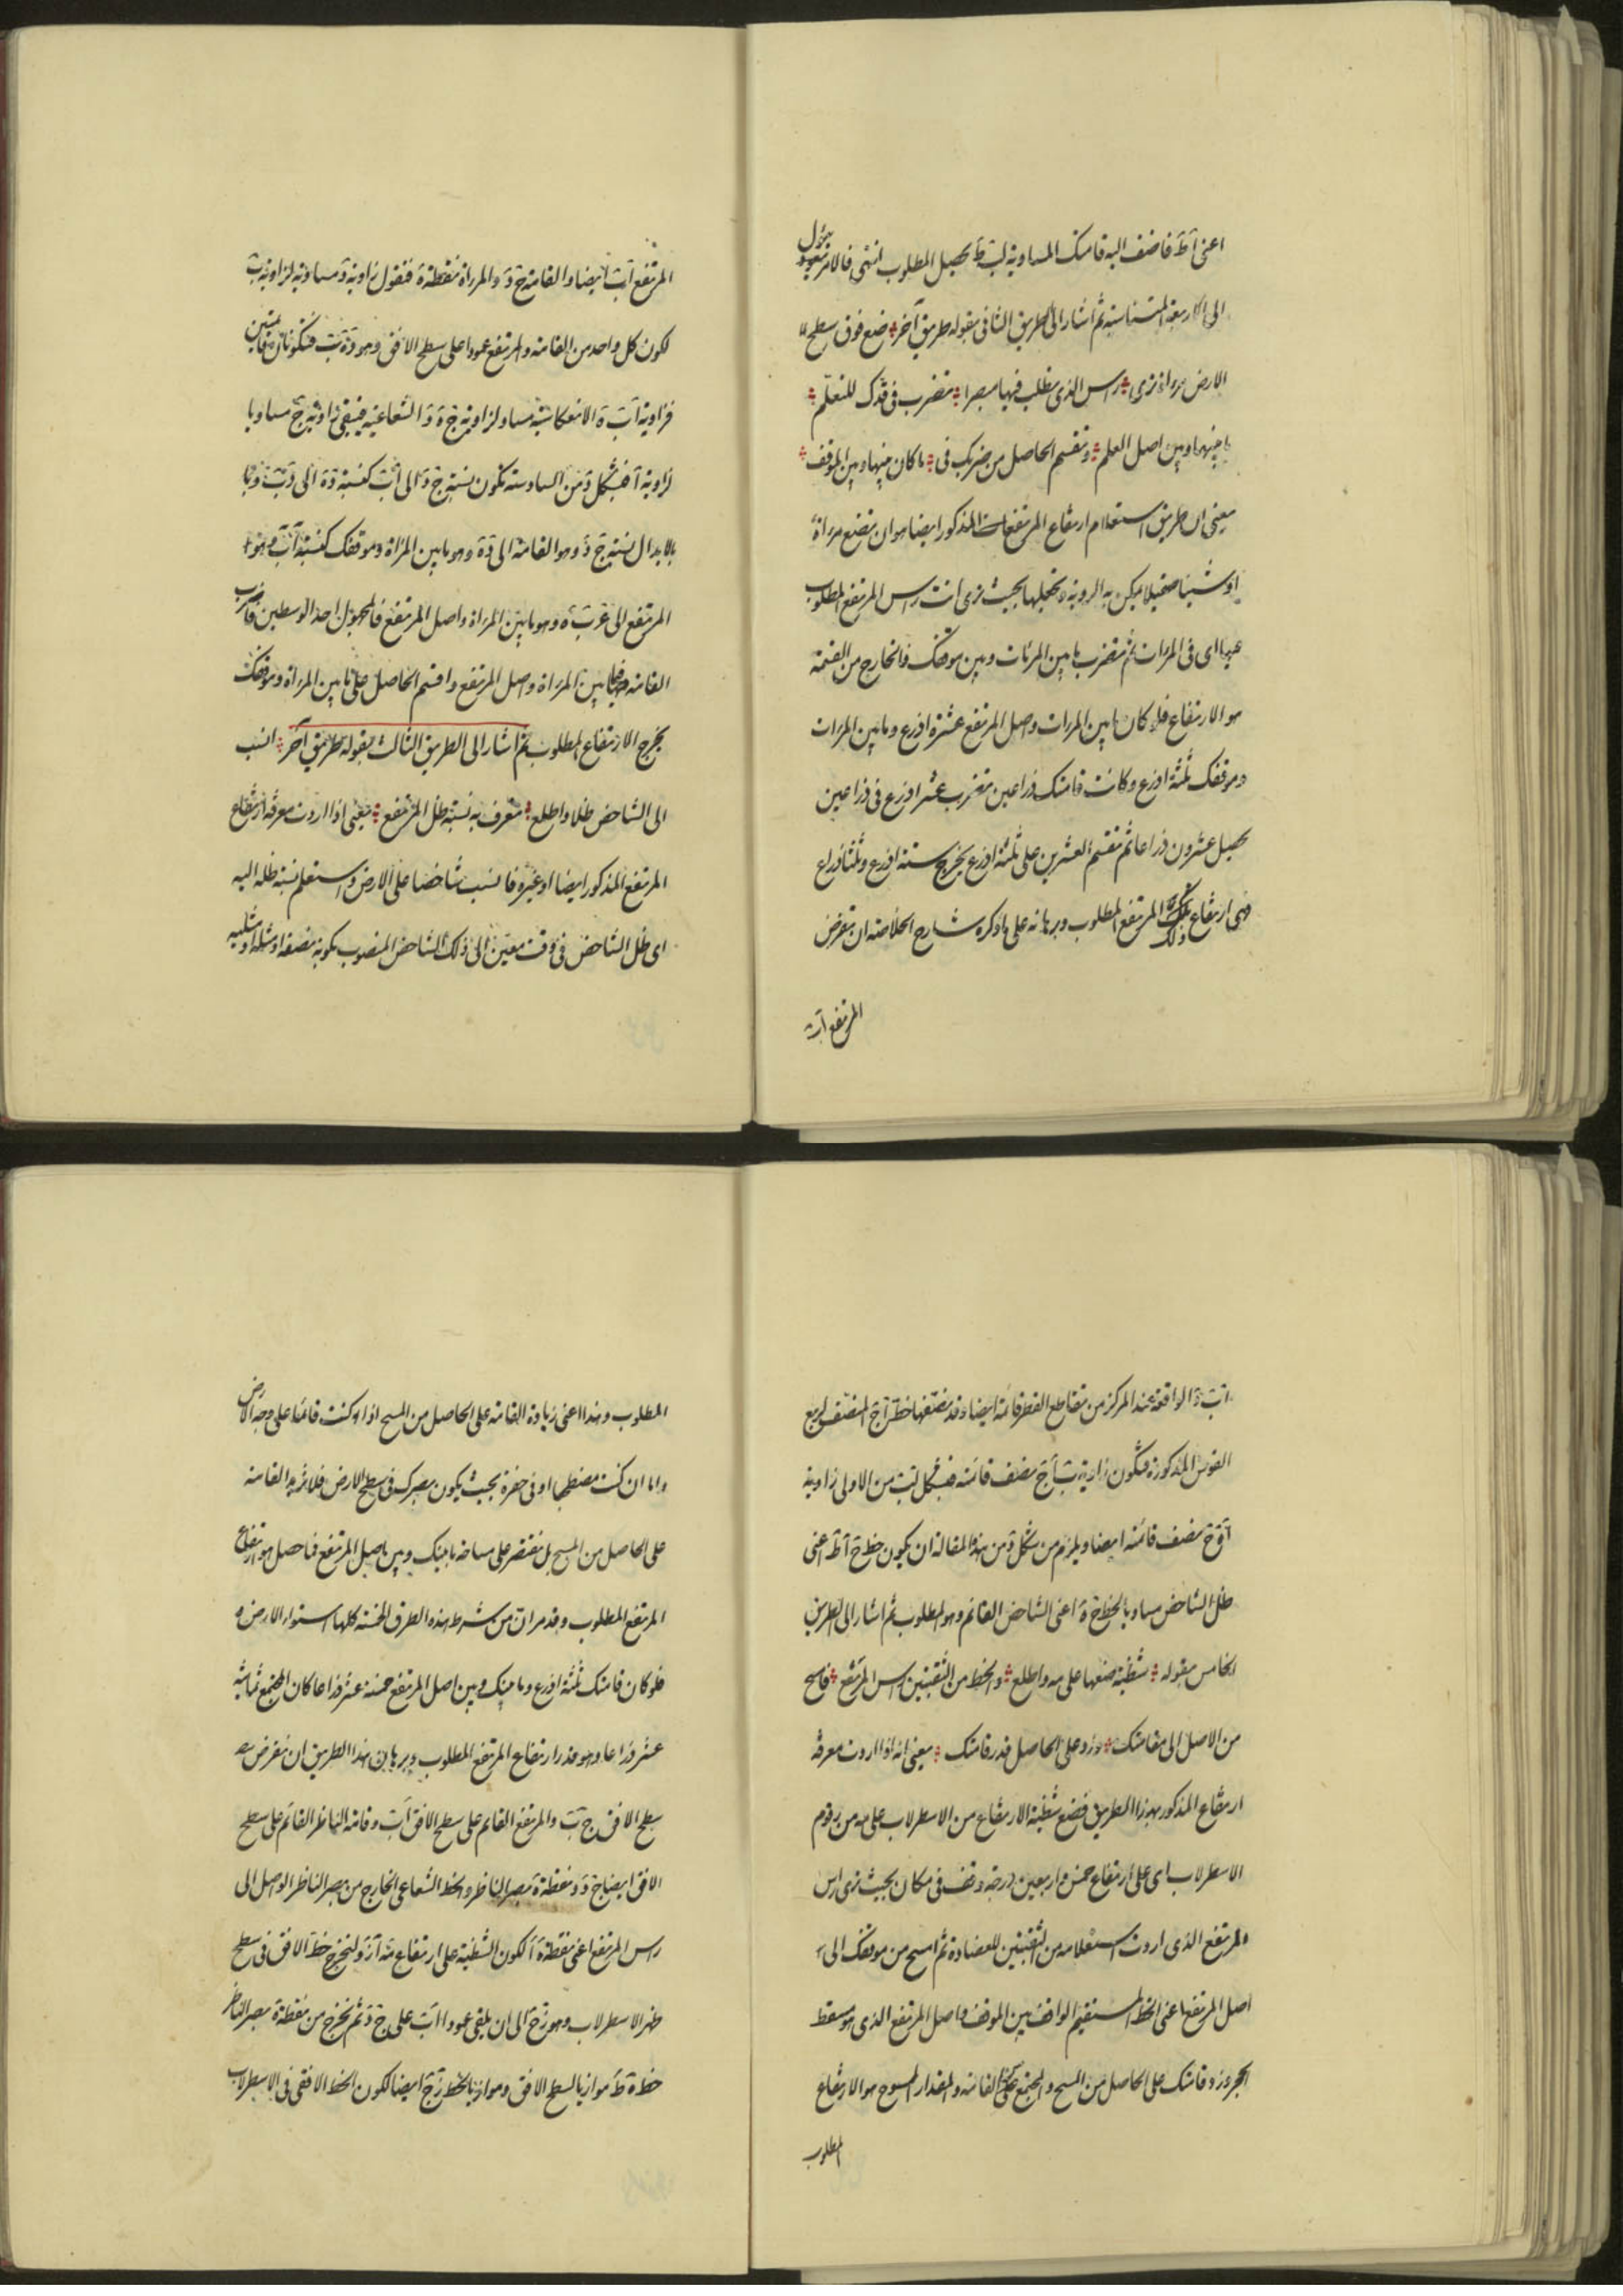 اعنى آطَ فاضف اليه قامتك المساوية لب طَ يحصل المطلوب انتهى فالامر يئول
الى الاربعة المتناسبة ثم اشار الى الطريق الثانى بقوله طريق آخر ضع فوق سطح
الارض مرءاة ترى راس الذى تطلب فيها مبصرا تضرب فى قدك للتعلم
ما بينها وبين اصل العلم وتقسم الحاصل من ضربك فى ما كان بينها وبين الموقف
يعنى ان طريق استعلام ارتفاع المرتفعات المذكور ايضا هو ان تضع مرءاة
او شيئا صقيلا يمكن به الروية بحيث ترى انت راس المرتفع المطلوب
فيها اى فى المرات ثم تضرب ما بين المرئات وبين موقفك فالخارج من القسمة
هو الارتفاع فلو كان ما بين المرات واصل المرتفع عشرة اذرع وما بين المرات
وموقفك ثلثة اذرع وكانت قامتك ذراعين تضرب عشر اذرع فى ذراعين
يحصل عشرون ذراعا ثم تقسم العشرين على ثلثة اذرع يخرج ستة اذرع وثلثا ذراع
فهى ارتفاع ذلك المرتفع المطلوب وبرهانه على ما ذكره شارح الخلاصة ان تفرض
المرتفع آب
المرتفع آب ايضا والقامة ج د والمراة نقطة ه فنقول زاوية د مساوية لزاوية ب
لكون كل واحد من القامة والمرتفع عمودا على سطح الافق وهو د ه ب فتكونان قائمتين
فزاوية آ ه ب الانعكاسية مساو لزاوية ج ه د الشعاعية فيبقى زاوية ج مساويا
لزاوية آ فبشكل د من السادسة تكون نسبة ج د الى آب كنسبة د ه الى ه ب
بالابدال نسبة ج د وهو القامة الى د ه وهو ما بين المراة وموقفك كنسبة آب وهو
المرتفع الى ب ه وهو ما بين المراة واصل المرتفع فالمجهول احد الوسطين فاضرب
القامة فيما بين المراة واصل المرتفع واقسم الحاصل على ما بين المراة وموقفك
يخرج الارتفاع المطلوب ثم اشار الى الطريق الثالث بقوله طريق آخر انسب
الى الشاخص ظلا واطلع تعرف به نسبة ظل المرتفع يعنى اذا اردت معرفة ارتفاع
المرتفع المذكور ايضا او غيره فانسب شاخصا على الارض واستعلم نسبة ظله اليه
اى ظل الشاخص فى وقت معين الى ذلك الشاخص المنصوب بكونه نصفه او مثله او مثليه
الواقعة عند المركز من تقاطع القطر قائمة ايضا وقد نصفها خط آج المنصف لربع
القوس المذكورة فتكون زاوية ب آج نصف قائمة فبشكل لب من الاولى زاوية
نصف قائمة ايضا ويلزم من شكل و من هذه المقالة ان يكون خط اعنى
ظل الشاخص مساويا لخط ج ه اعنى الشاخص القائم وهو المطلوب ثم اشار الى الطريق
الخامس بقوله شظية ضعها على مه واطلع والحظ من الثقبتين راس المرتفع فامسح
من الاصل الى مقامتك وزد على الحاصل قدر قامتك يعنى انه اذا اردت معرفة
ارتفاع المذكور بهذا الطريق فضع شظية الارتفاع من الاسطرلاب على مه من رقوم
الاسطرلاب اى على ارتفاع خمس واربعين درجة وقف فى مكان بحيث ترى راس
المرتفع الذى اردت استعلامه من الثقبتين للعضادة ثم امسح من موقفك الى
اصل المرتفع اعنى الخط المستقيم الواقف بين الموقف واصل المرتفع الذى هو مسقط
الحجر وزد قامتك على الحاصل من المسح والمجتمع القامة والمقدار الممسوح هو الارتفاع
المطلوب
المطلوب وهذا اعنى زيادة القامة على الحاصل من المسح اذا كنت قائما على وجه الارض
واما ان كنت مضطجعا او فى حفرة بحيث يكون بصرك فى سطح الارض فلا تزيد القامة
على الحاصل من المسح بل تقتصر على مساحة ما بينك وبين اصل المرتفع فما حصل هو ارتفاع
المرتفع المطلوب وقد مر ان من شرط هذه الطرق الخمسة كلها استواء الارض و
فلو كان قامتك ثلثة اذرع وما بينك وبين اصل المرتفع خمسة عشر ذراعا كان المجتمع ثمانية
عشر ذراعا وهو قدر ارتفاع المرتفع المطلوب وبرهان هذا الطريق ان تفرض
سطح الافق ج ب والمرتفع القائم على سطح الافق آب وقامة الناظر القائم على سطح
الافق ايضا ج د ونقطة ه بصر الناظر والخط الشعاعى الخارج من بصر الناظر الواصل الى
راس المرتفع اعنى نقطة ه آ لكون الشظية على ارتفاع مه آ ز ولنخرج خط الافق فى سطح
ظهر الاسطرلاب وهو ز ح الى ان يلقى عمود آب على ج د ثم نخرج من نقطة ه بصر الناظر
خط ه ط موازيا لسطح الافق وموازيا لخط ز ح ايضا لكون الخط الافقى فى الاسطرلاب